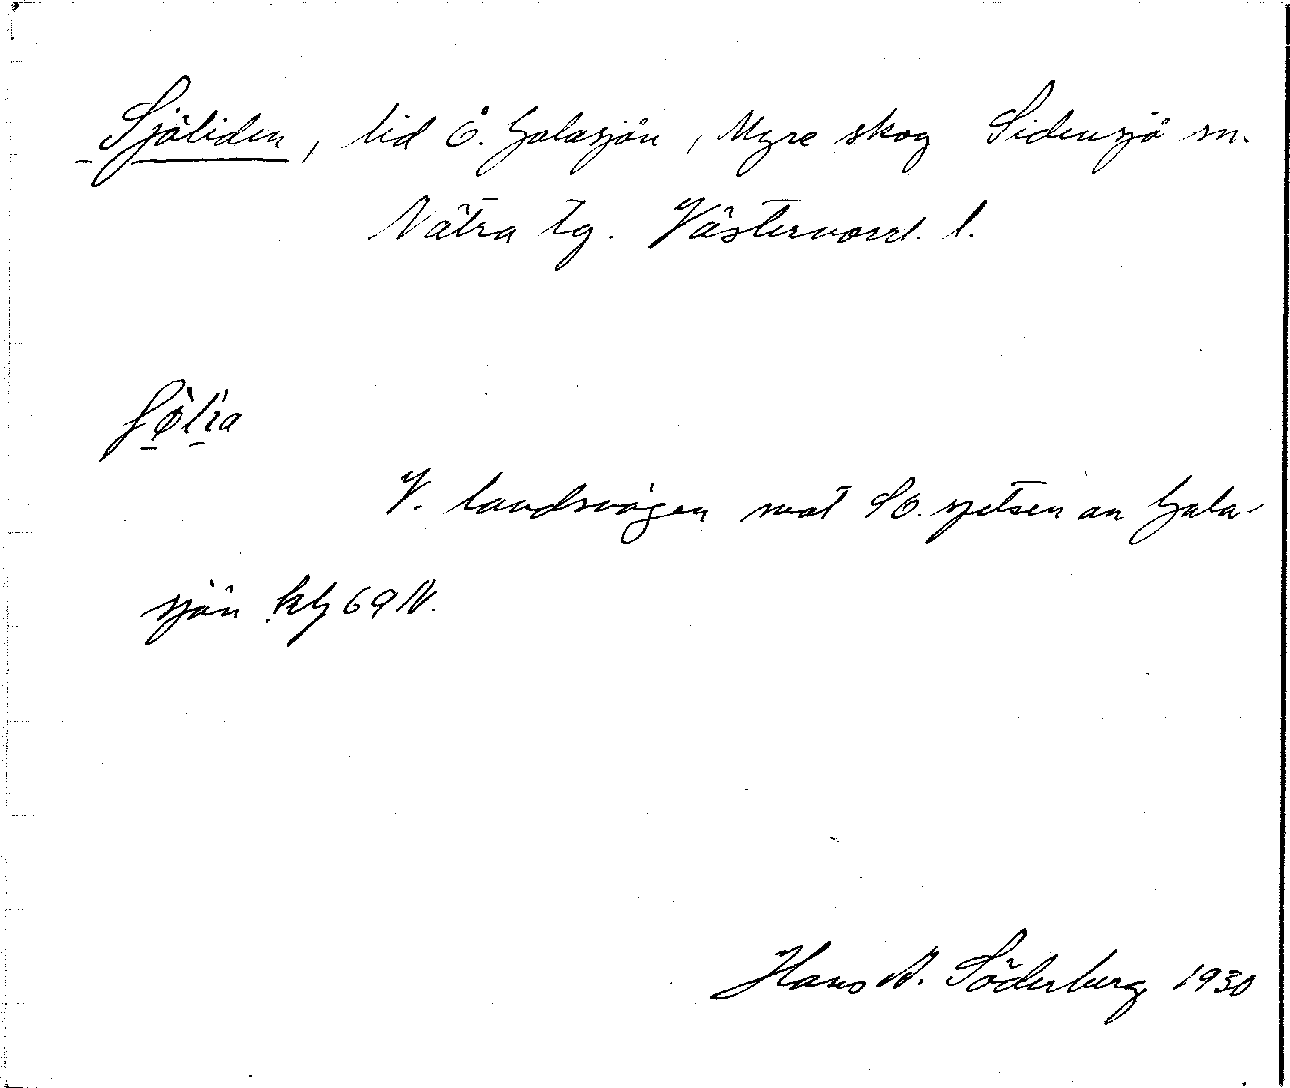 Sjöliden, lid Ö. Galasjön, Myre skog Sidensjö sn.
Nätra tg. Västernorrl. l.
V. landsvägen mot SÖ. spetsen av Gala-
sjön kbl 69 N.
Hans A. Söderberg 1930